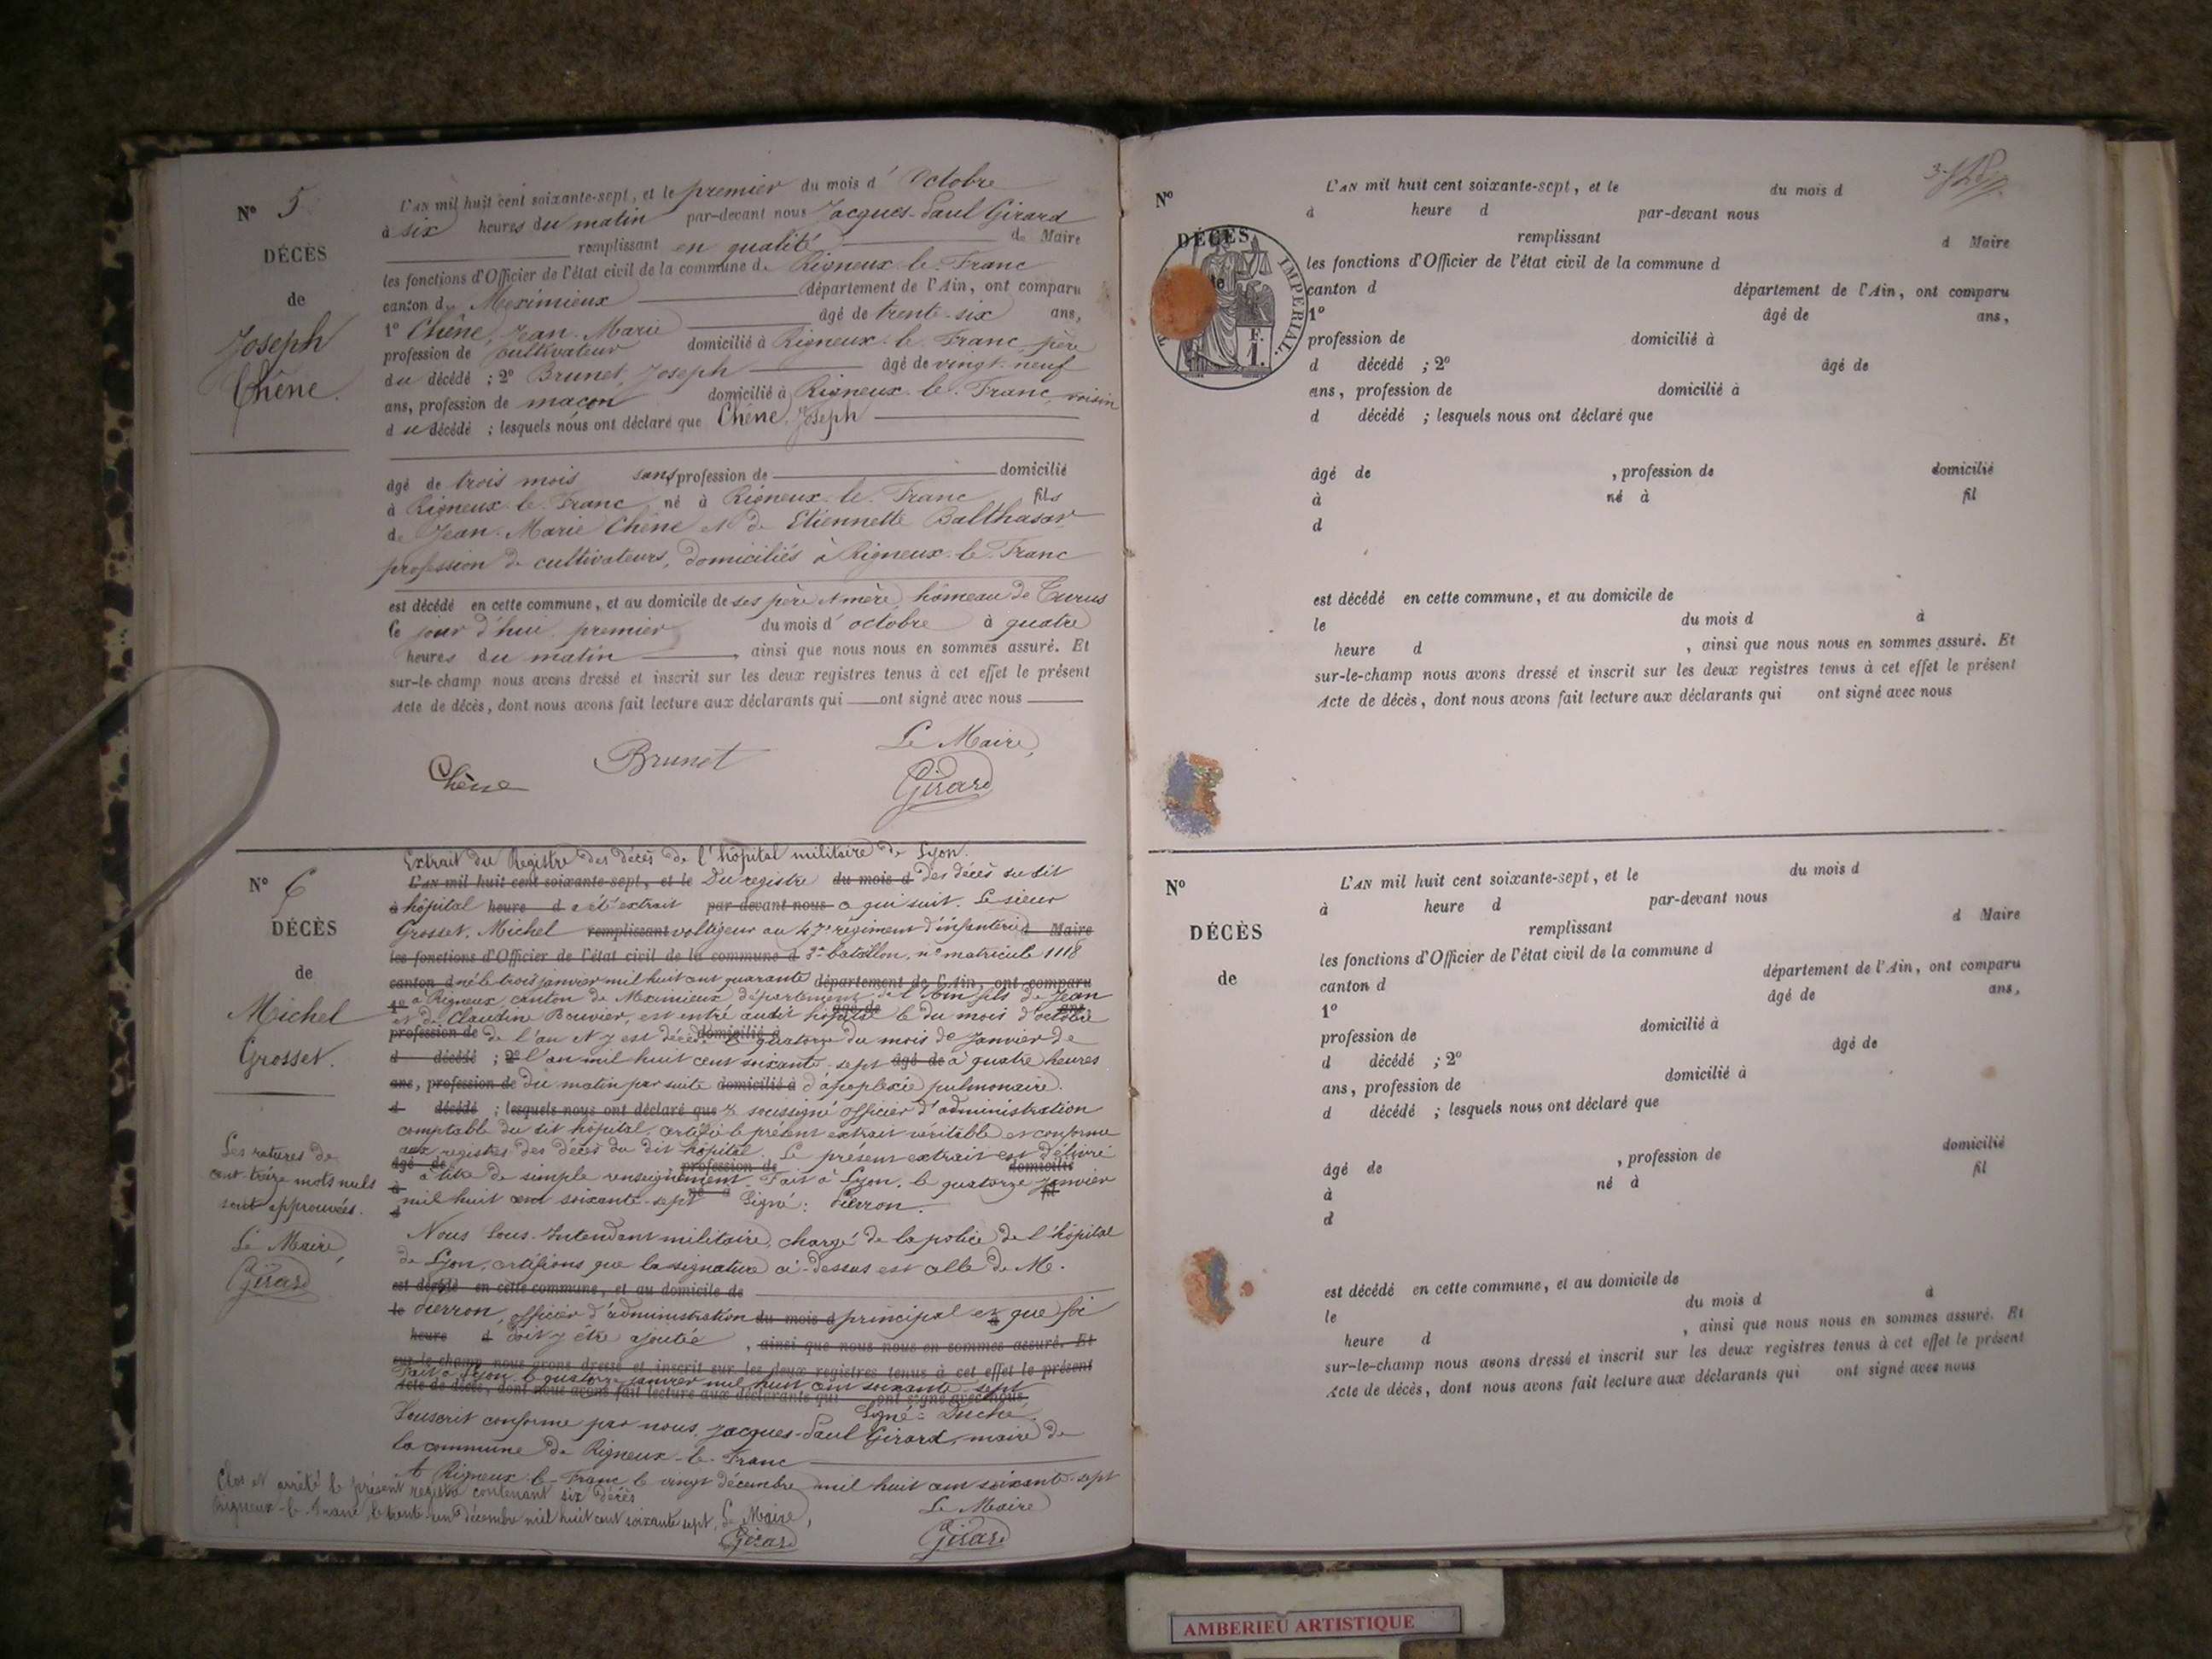 N° 5
DÉCÈS
de
Joseph
Chêne.
L'AN mil huit cent soixante-sept, et le premier du mois d'Octobre
à six heures du matin par-devant nous Jacques-Paul Girard
remplissant en qualité de Maire
les fonctions d'Officier de l'état civil de la commune de Rigneux-le-Franc
canton de Meximieux département de l'Ain, ont comparu
1° Chêne, Jean-Marie âgé de trente-six ans,
profession de cultivateur domicilié à Rigneux-le-Franc, père
du décédé ; 2° Brunet, Joseph âgé de vingt-neuf
ans, profession de maçon domicilié à Rigneux-le-Franc, voisin
du décédé ; lesquels nous ont déclaré que Chêne, Joseph
âgé de trois mois sans profession de domicilié
à Rigneux-le-Franc né à Rigneux-le-Franc fils
de Jean-Marie Chêne et de Etiennette Balthasar
profession de cultivateurs, domiciliés à Rigneux-le-Franc
est décédé en cette commune, et au domicile de ses père et mère, hameau de
le jour d'hui premier du mois d'octobre à quatre
heures du matin, ainsi que nous nous en sommes assuré. Et
sur-le-champ nous avons dressé et inscrit sur les deux registres tenus à cet effet le présent
Acte de décès, dont nous avons fait lecture aux déclarants qui ont signé avec nous
Le Maire,
Chêne Brunet Girard
N° 6
DÉCÈS
de
Michel
Grosset.
Les ratures de
cent-treize mots nuls
sont approuvées.
Le Maire,
Girard
Extrait du Registre des décès de l'hôpital militaire de Lyon.
L'AN mil huit cent soixante-sept, et le Du registre du mois d des décès du dit
à hôpital heure d a été extrait par-devant nous ce qui suit. Le sieur
Grosset, Michel remplissant voltigeur au 47e régiment d'infanterie d Maire
les fonctions d'Officier de l'état civil de la commune d 3e bataillon, n° matricule 1118
canton d né le trois janvier mil huit cent quarante département de l'Ain, ont comparu
1° à Rigneux, canton de Meximieux, département de l'Ain fils de Jean
et de Claudine Bouvier, est entré audit hôpital âgé de le du mois d'octobre ans,
profession de de l'an et y est décédé domicilié à le quatorze du mois de Janvier de
d décédé ; 2° l'an mil huit cent soixante-sept âgé de à quatre heures
ans, profession de du matin par suite domicilié à d'apoplexie pulmonaire.
d décédé ; lesquels nous ont déclaré que soussigné officier d'administration
comptable du dit hôpital, certifie le présent extrait véritable et conforme
aux registres des décès du dit hôpital. Le présent extrait est délivré
âgé de à titre de simple renseignement profession de Fait à Lyon, le quatorze janvier domicilié
à mil huit cent soixante-sept né à Signé : Pierron. fil
d
Nous Sous-Intendant militaire, chargé de la police de l'hôpital
de Lyon, certifions que la signature ci-dessus est celle de M.
est décédé en cette commune, et au domicile de
le Pierron, officier d'administration du mois d principal et à que foi
heure d doit y être ajoutée, ainsi que nous nous en sommes assuré. Et
sur-le-champ nous avons dressé et inscrit sur les deux registres tenus à cet effet le présent
Fait à Lyon le quatorze janvier mil huit cent soixante-sept
Acte de décès, dont nous avons fait lecture aux déclarants qui ont signé avec nous
Signé : Duché.
Souscrit conforme par nous, Jacques-Paul Girard, maire de
la commune de Rigneux-le-Franc
A Rigneux-le-Franc le vingt décembre mil huit cent soixante-sept
Le Maire
Girard
Clos et arrêté le présent registre contenant six décès
Rigneux-le-Franc, le trente-un Décembre mil huit cent soixante sept, Le Maire,
Girard
N°
DÉCÈS
de
IMPERIAL.
F.
1.
L'AN mil huit cent soixante-sept, et le du mois d
à heure d par-devant nous
remplissant d Maire
les fonctions d'Officier de l'état civil de la commune d
canton d département de l'Ain, ont comparu
1° âgé de ans,
profession de domicilié à
d décédé ; 2° âgé de
ans, profession de domicilié à
d décédé ; lesquels nous ont déclaré que
âgé de , profession de domicilié
à né à fil
d
est décédé en cette commune, et au domicile de
le du mois d à
heure d , ainsi que nous nous en sommes assuré. Et
sur-le-champ nous avons dressé et inscrit sur les deux registres tenus à cet effet le présent
Acte de décès, dont nous avons fait lecture aux déclarants qui ont signé avec nous
N°
DÉCÈS
de
L'AN mil huit cent soixante-sept, et le du mois d
à heure d par-devant nous
remplissant d Maire
les fonctions d'Officier de l'état civil de la commune d
canton d département de l'Ain, ont comparu
1° âgé de ans,
profession de domicilié à
d décédé ; 2° âgé de
ans, profession de domicilié à
d décédé ; lesquels nous ont déclaré que
âgé de , profession de domicilié
à né à fil
d
est décédé en cette commune, et au domicile de
le du mois d à
heure d , ainsi que nous nous en sommes assuré. Et
sur-le-champ nous avons dressé et inscrit sur les deux registres tenus à cet effet le présent
Acte de décès, dont nous avons fait lecture aux déclarants qui ont signé avec nous
AMBERIEU ARTISTIQUE